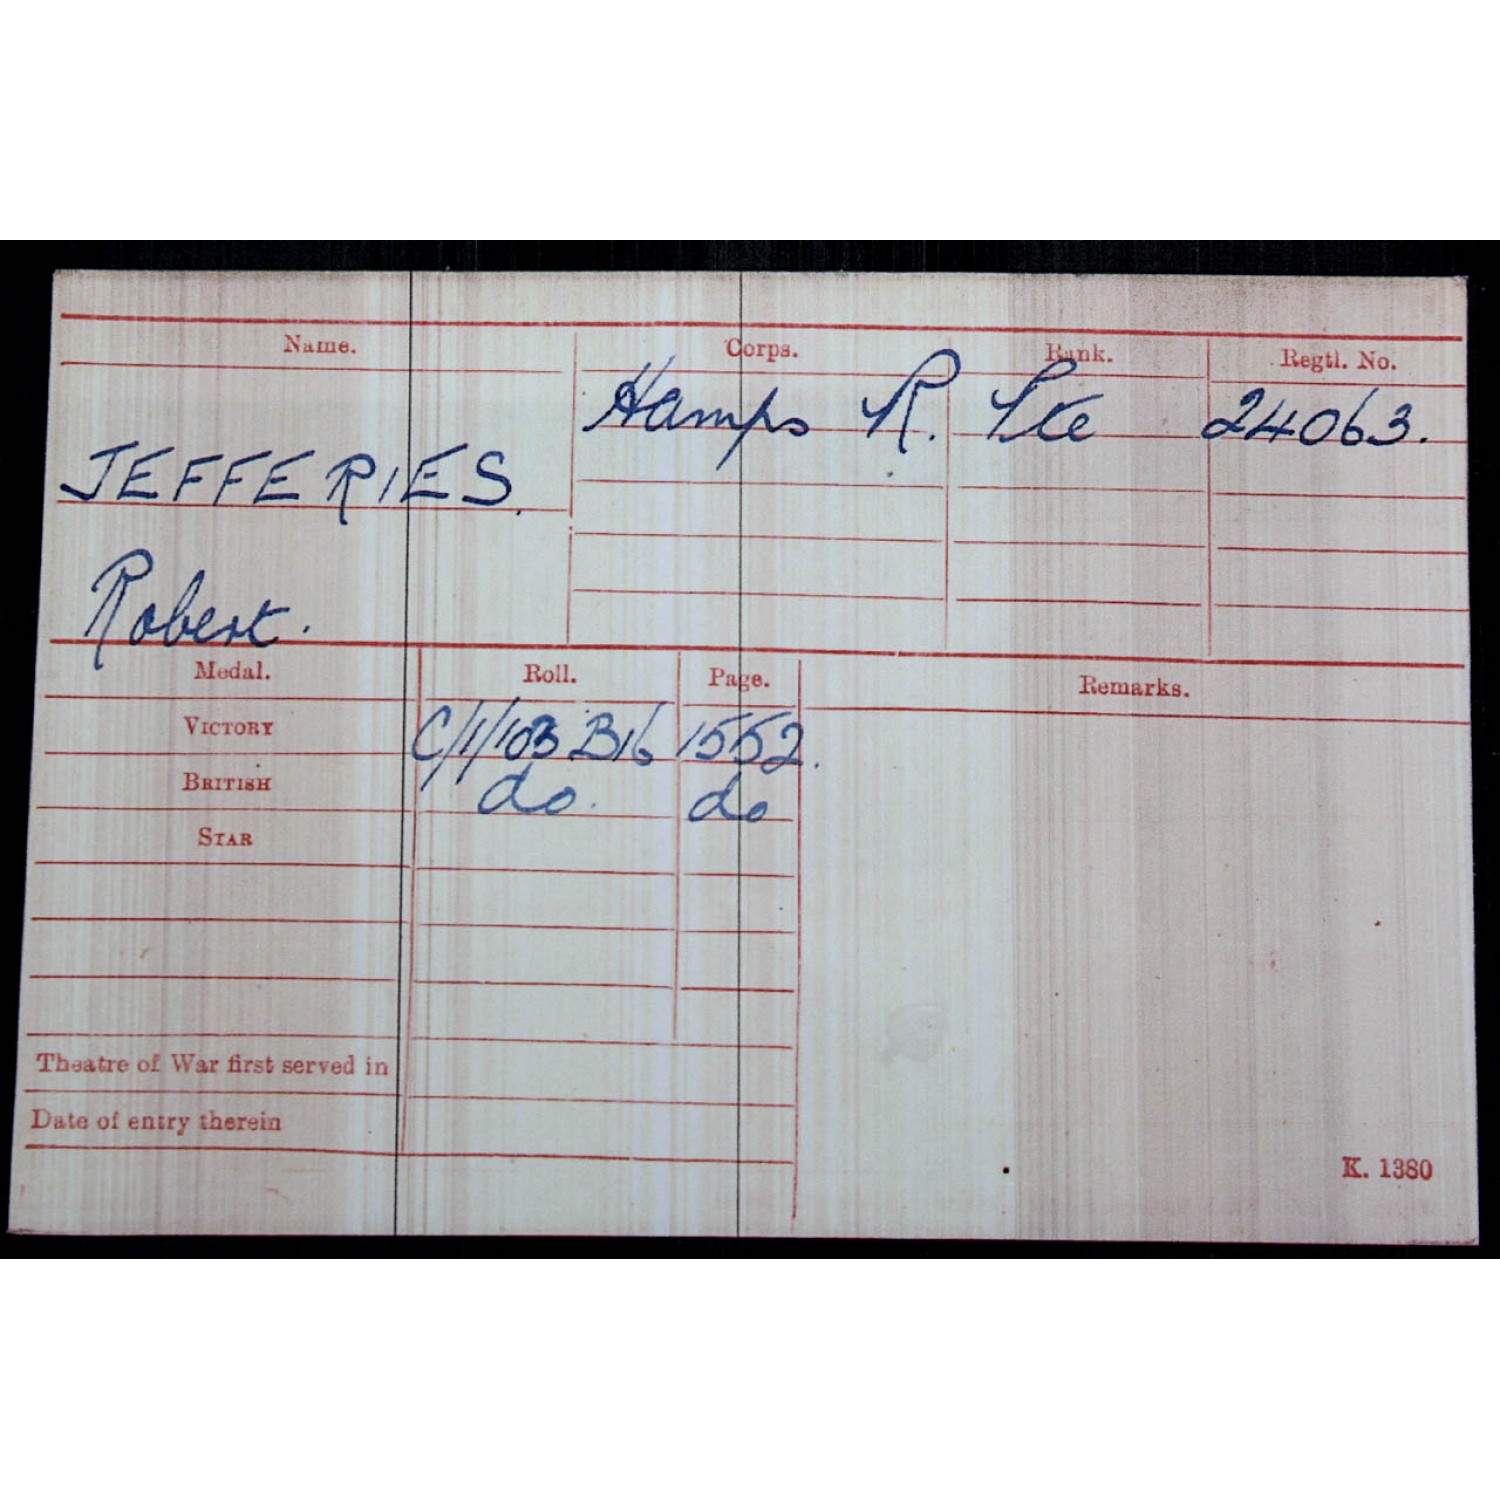 Name. Corps. Rank. Regtl. No.
Hamps R. Pte 24063.
JEFFERIES.
Robert.
Medal. Roll. Page. Remarks.
VICTORY C/1/103 B16 1552.
BRITISH do. do
STAR
Theatre of War first served in
Date of entry therein
K. 1380